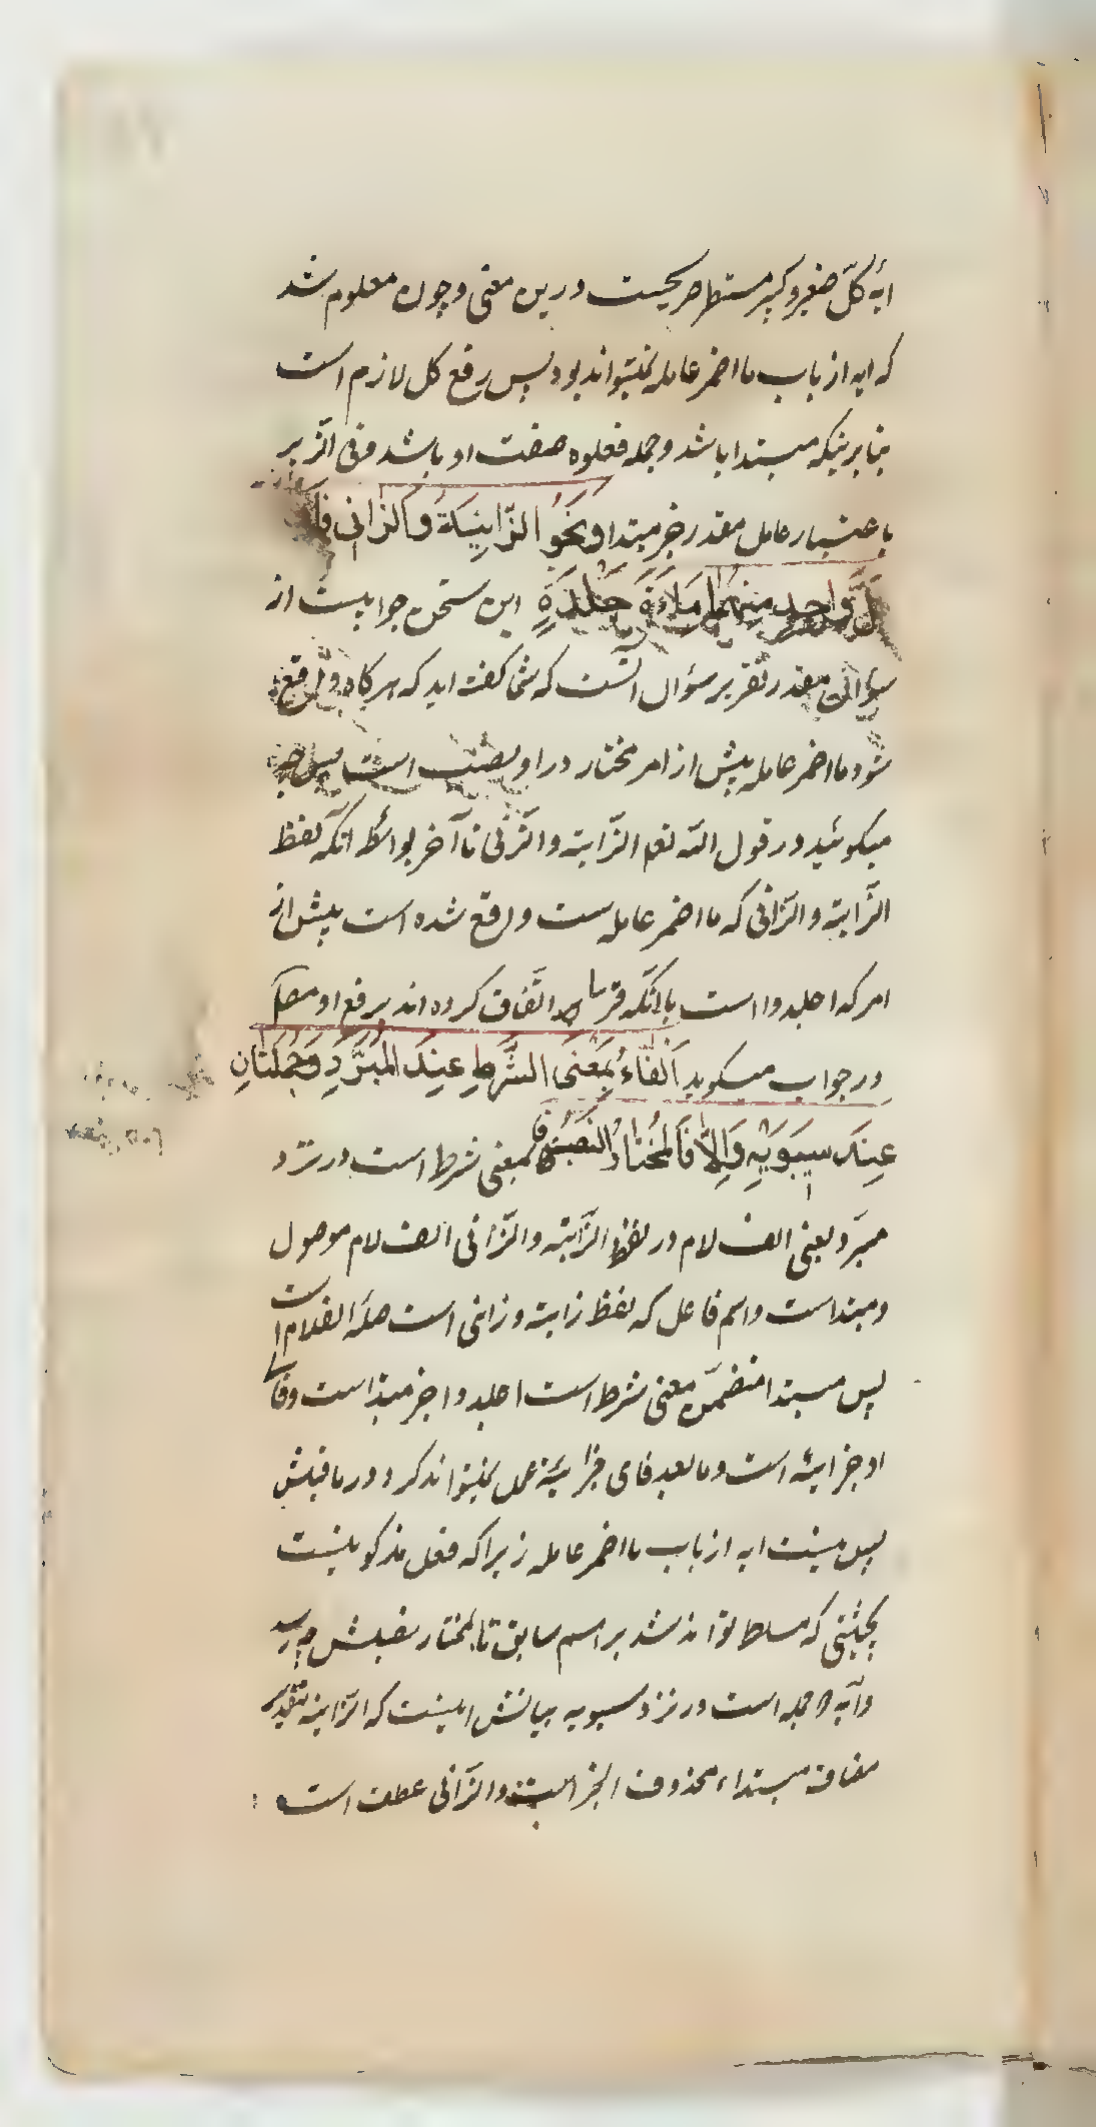 ایه کلّ صغیر و کبیر مستطر صریحیست درین معنی و چون معلوم شد
که ایه از باب ما اضمر عامله نمیتواند بود پس رفع کل لازم است
بنا برینکه مبتدا باشد و جمله فعلوه صفت او باشد و فی الزّبر
باعتبار عامل مقدر خبر مبتدا و نَحوُ الزّانِیَةُ وَالزّانی فا
کلَّ واحِدٍ مِنهُما مِاءَةَ جَلدَةٍ این سخن جوابیست از
سؤالی مقدر تقریر سؤال آنست که شما گفته اید که هرگاه واقع
شود ما اضمر عامله پیش از امر مختار در او نصب است پس چه
میگوئید در قول الله تعم الزّانیة و الزّانی تا آخر بواسطه آنکه لفظ
الزّانیة و الزّانی که ما اضمر عامله ست واقع شده است پیش از
امر که اجلدوا است با آنکه قرّا اتّفاق کرده اند برفع او مص
در جواب میگوید اَلفاءُ بِمَعنَی الشَّرطِ عِندَ المُبَرَّدِ وَ جُملَتانِ
عِندَ سیبَوَیهِ وَ اِلّا فَالمُختارُ النَصبُ فا بمعنی شرط است در نزد
مبرّد یعنی الف لام در لفظ الزّانیة و الزّانی الف لام موصول
و مبتداست و اسم فاعل که لفظ زانیة و زانی است صلهٔ الفلام است
پس مبتدا متضمّن معنی شرط است اجلدوا خبر مبتداست و فای
او جزائیّه است و ما بعد فای جزائیّة عمل نمیتواند کرد در ما قبلش
پس نیست ایه از باب ما اضمر عامله زیرا که فعل مذکور نیست
بحیثیتی که مسلط تواند شد بر اسم سابق تا مختار نصبش
و آیه دو جمله است در نزد سیبویه بیانش اینست که الزّانیة بتقدیر
مضاف مبتداء محذوف الخبر است و الزّانی عطف است